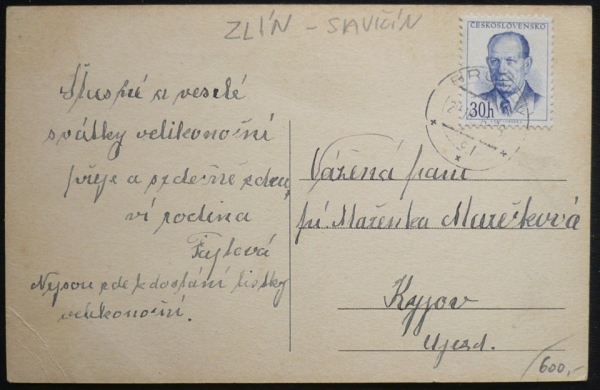 ZLÍN - SAVIČÍN
ČESKOSLOVENSKO
30h
Štasné a veselé
svátky velikonoční
přeje a srdečně zdra
ví rodina
Fajtová
Nejsou zde k dostání lístky
velikonoční.
Vážená paní
pí. Mařenka Marečková
Kyjov
Ujezd.
600,-